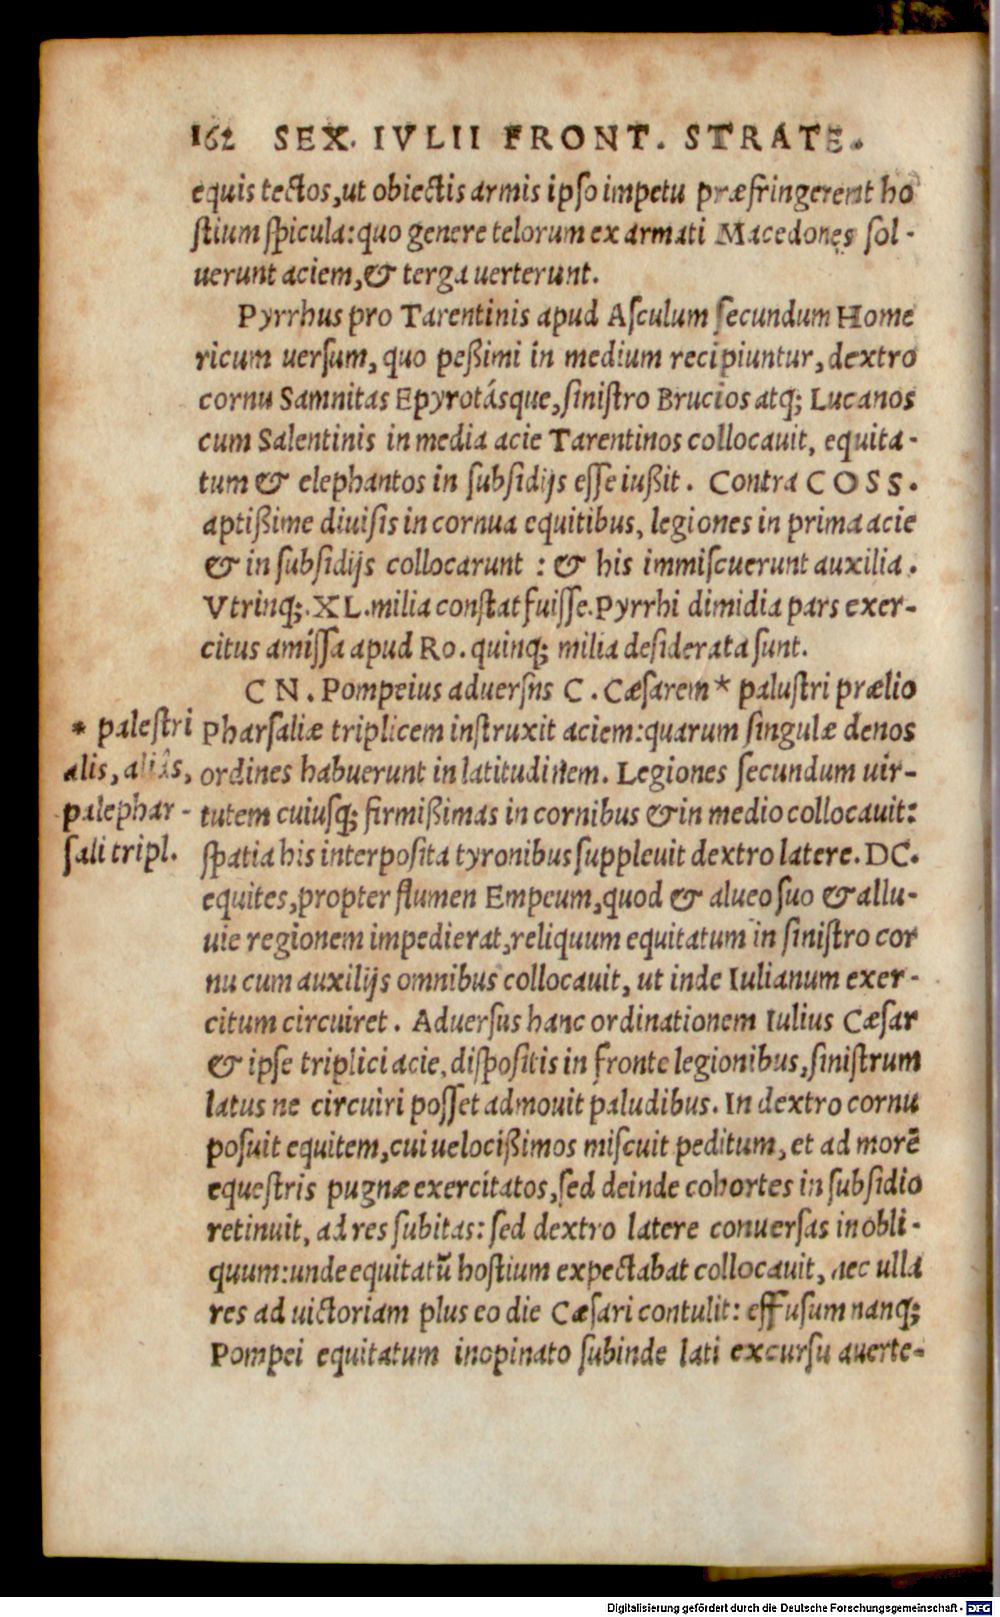 162 SEX. IVLII FRONT. STRATE.
equis tectos, ut obiectis armis ipso impetu præfringerent ho
stium spicula: quo genere telorum exarmati Macedones sol-
uerunt aciem, & terga uerterunt.
Pyrrhus pro Tarentinis apud Asculum secundum Home
ricum uersum, quo peßimi in medium recipiuntur, dextro
cornu Samnitas Epyrotásque, sinistro Brucios atq; Lucanos
cum Salentinis in media acie Tarentinos collocauit, equita-
tum & elephantos in subsidijs esse iußit. Contra COSS.
aptißime diuisis in cornua equitibus, legiones in prima acie
& in subsidijs collocarunt: & his immiscuerunt auxilia.
Vtrinq;. XL. milia constat fuisse. Pyrrhi dimidia pars exer-
citus amissa apud Ro. quinq; milia desiderata sunt.
CN. Pompeius aduersns C. Cæsarem* palustri prælio
Pharsaliæ triplicem instruxit aciem: quarum singulæ denos
ordines habuerunt in latitudinem. Legiones secundum uir-
tutem cuiusq; firmißimas in cornibus & in medio collocauit:
spatia his interposita tyronibus suppleuit dextro latere. DC.
equites, propter flumen Empeum, quod & alueo suo & allu-
uie regionem impedierat, reliquum equitatum in sinistro cor
nu cum auxilijs omnibus collocauit, ut inde Iulianum exer-
citum circuiret. Aduersus hanc ordinationem Iulius Cæsar
& ipse triplici acie, dispositis in fronte legionibus, sinistrum
latus ne circuiri posset admouit paludibus. In dextro cornu
posuit equitem, cui uelocißimos miscuit peditum, et ad morē
equestris pugnæ exercitatos, sed deinde cohortes in subsidio
retinuit, ad res subitas: sed dextro latere conuersas in obli-
quum: unde equitatū hostium expectabat collocauit, nec ulla
res ad uictoriam plus eo die Cæsari contulit: effusum nanq;
Pompei equitatum inopinato subinde lati excursu auerte-
* palestri
alis, aliâs,
palephar-
sali tripl.
Digitalisierung gefördert durch die Deutsche Forschungsgemeinschaft - DFG